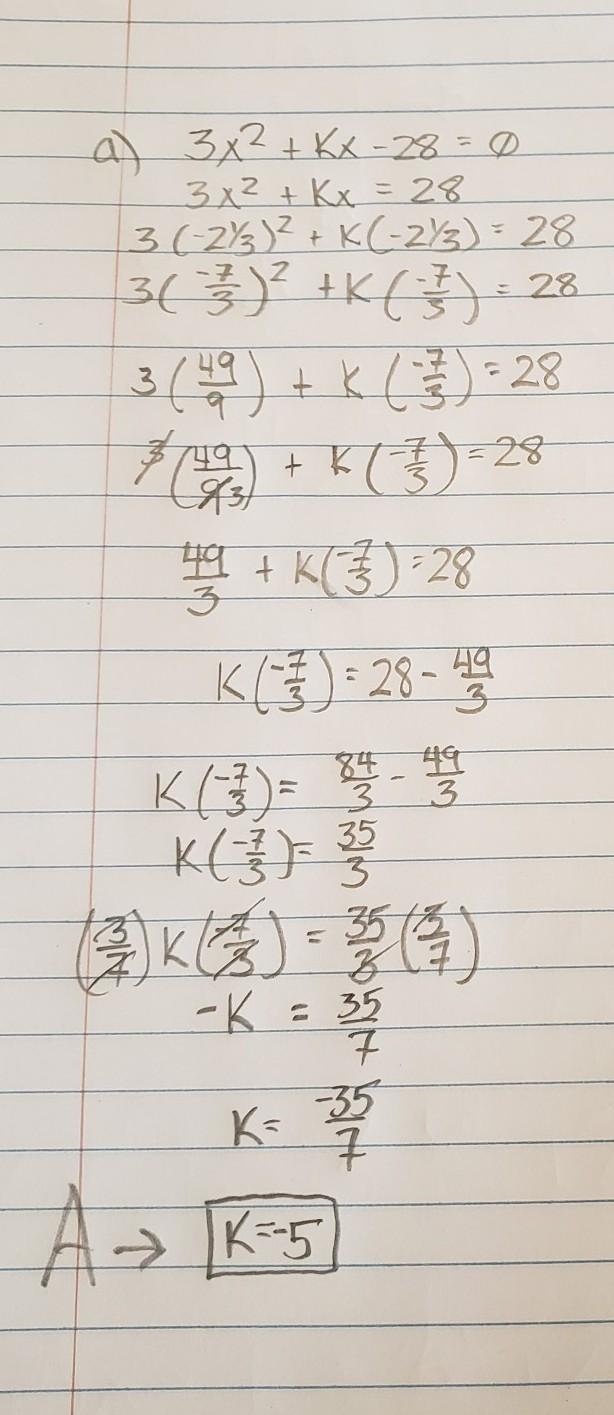 a) 3x² + Kx - 28 = 0
3x² + Kx = 28
3(-2 1/3)² + K(-2 1/3) = 28
3(-7/3)² + K(-7/3) = 28
3(49/9) + K(-7/3) = 28
3(49/9 3) + K(-7/3) = 28
49/3 + K(-7/3) = 28
K(-7/3) = 28 - 49/3
K(-7/3) = 84/3 - 49/3
K(-7/3) = 35/3
(3/7) K(-7/3) = 35/3 (3/7)
-K = 35/7
K = -35/7
A → K=-5